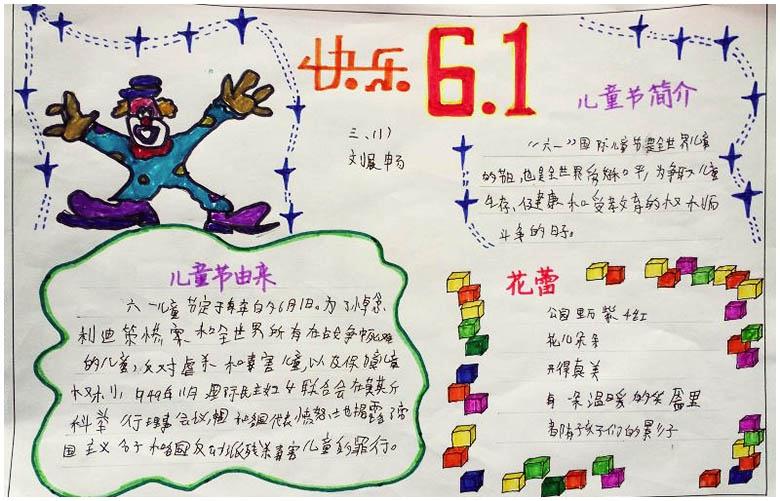 快乐 6.1
三、(1)
刘展畅
儿童节简介
"六一"国际儿童节是全世界儿童
的节日,也是全世界爱好和平,为争取儿童
生存、保健 和受教育的权利而
斗争的日子。
儿童节由来
六一儿童节定于每年的6月1日。为了悼念
利迪策惨案 和全世界所有在战争中死难
的儿童,反对虐杀 和毒害儿童,以及保障儿童
权利,1949年11月国际民主妇女联合会在莫斯
科举行理事会议, 和 国代表愤怒地揭露了帝
国主义分子和各国反动派残杀毒害儿童的罪行。
花蕾
公园里万紫千红
花儿朵朵
开得真美
每一朵温暖的笑靥里
都有孩子们的影子